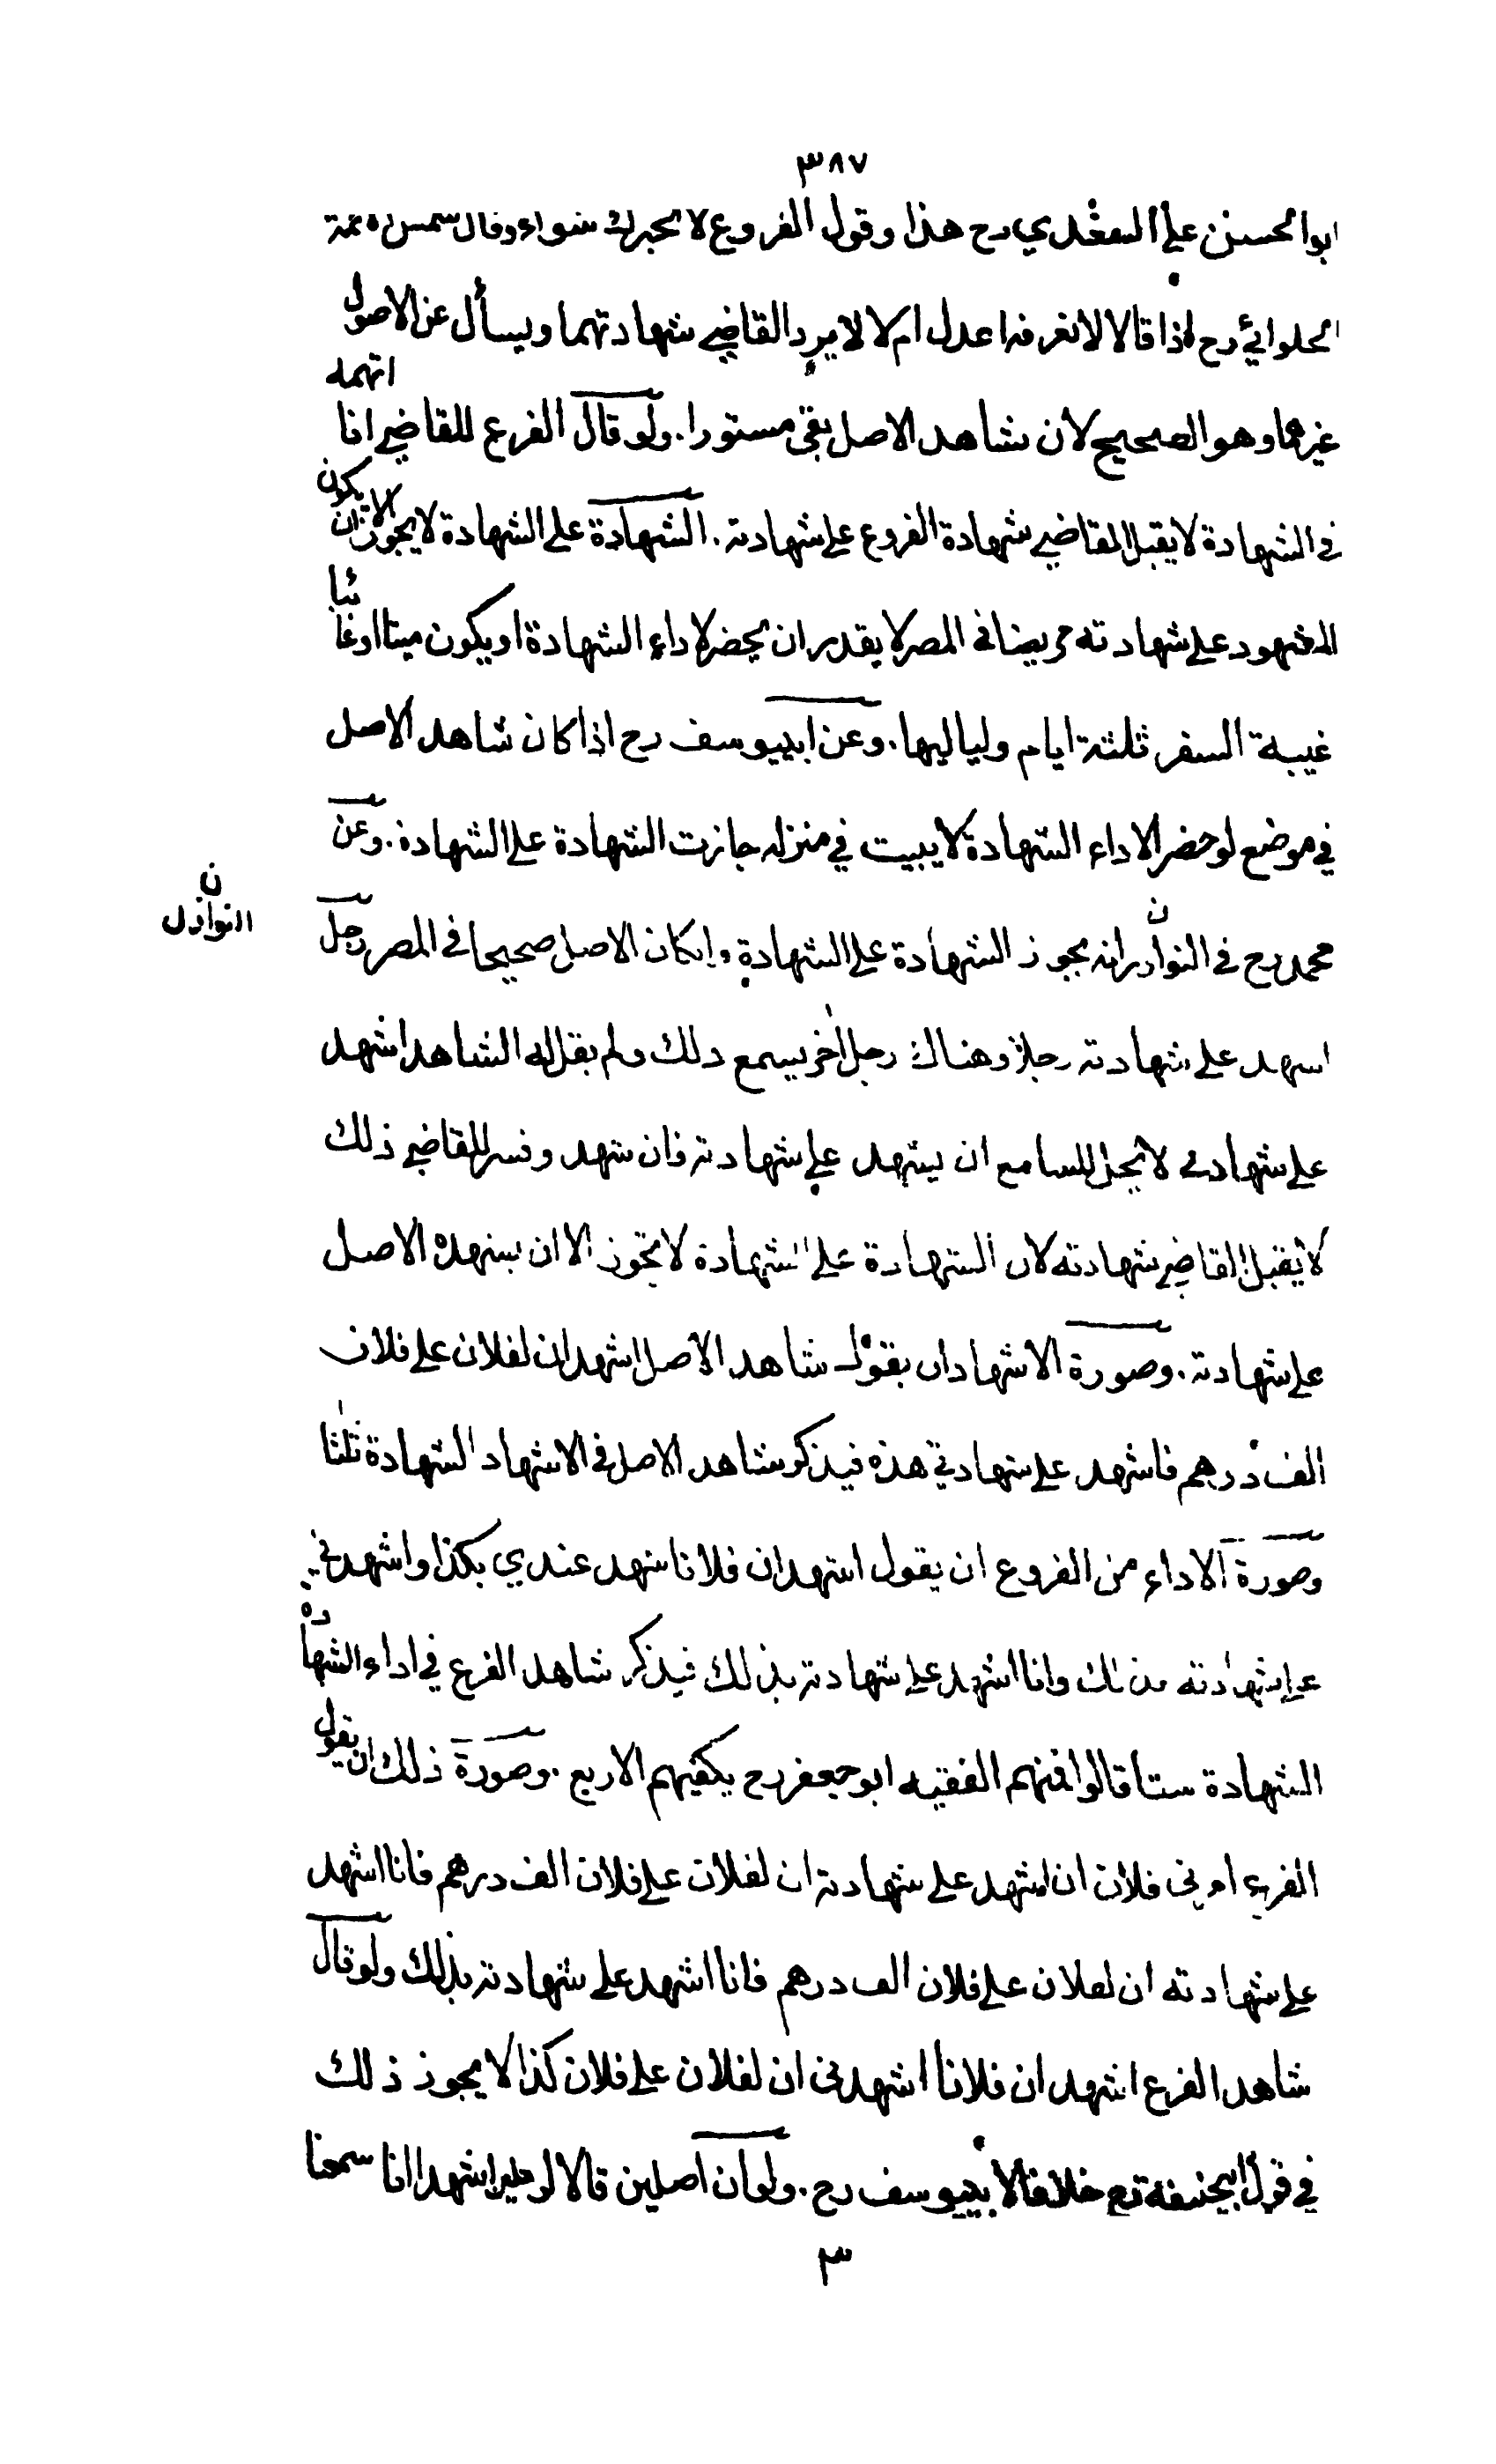 ٣٨٧
ابوالحسن علي السغدي رح هذا وقول الفروع لا نخبرك سواء وقال شمس الائمة
الحلوائي رح اذا قالا لا نعرفه اعدل ام لا لا يرد القاضي شهادتهما ويسأل عن الاصول
غيرهما وهو الصحيح لان شاهد الاصل بقي مستورا . ولو قال الفرع للقاضي انا اتهمه
في الشهادة لا يقبل القاضي شهادة الفروع على شهادته . الشهادة على الشهادة لا يجوز الا ان يكون
المشهود على شهادته مريضا في المصر لا يقدر ان يحضر لاداء الشهادة او يكون ميتا او غائبا
غيبة السفر ثلثة ايام ولياليها . وعن ابي يوسف رح اذا كان شاهد الاصل
في موضع لو حضر لاداء الشهادة لا يبيت في منزله جازت الشهادة على الشهادة . وعن
محمد رح في النوادر انه يجوز الشهادة على الشهادة وان كان الاصل صحيحا في المصر رجل
ن
ن
النوازل
اشهد على شهادته رجلا وهناك رجل آخر يسمع ذلك ولم يقل له الشاهد اشهد
على شهادتي لا يحل للسامع ان يشهد على شهادته فان شهد وفسر للقاضي ذلك
لا يقبل القاضي شهادته لان الشهادة على الشهادة لا تجوز الا ان يشهده الاصل
على شهادته . وصورة الاشهاد ان يقول شاهد الاصل اشهد ان لفلان على فلان
الف درهم فاشهد على شهادتي هذه فيذكر شاهد الاصل في الاشهاد الشهادة ثلثا
وصورة الاداء من الفروع ان يقول اشهد ان فلانا شهد عندي بكذا واشهدني
على شهادته بذلك وانا اشهد على شهادته بذلك فيذكر شاهد الفرع في اداء الشهادة
الشهادة ستا قالوا منهم الفقيه ابو جعفر رح يكفيهم الاربع . وصورة ذلك ان يقول
الفرع امرني فلان ان اشهد على شهادته ان لفلان على فلان الف درهم فانا اشهد
على شهادته ان لفلان على فلان الف درهم فانا اشهد على شهادته بذلك ولو قال
شاهد الفرع اشهد ان فلانا اشهدني ان لفلان على فلان كذا لا يجوز ذلك
في قول ابي حنيفة رح خلافا لابي يوسف رح . ولو ان اصلين قالا لرجلين اشهدا انا سمعنا
٣